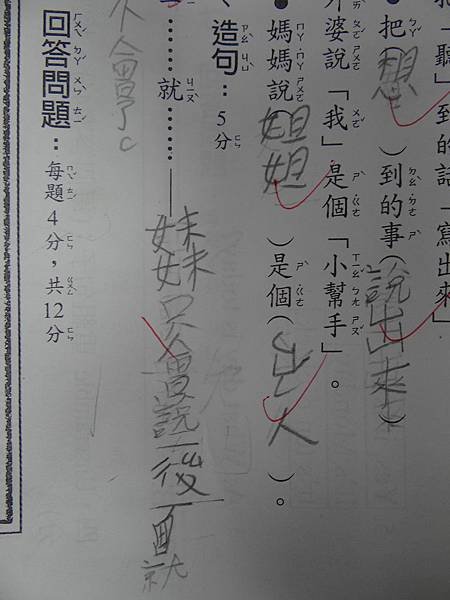 把「聽」到的話「寫出來」
●把 想 ）到的事（說出來）
外婆說「我」是個「小幫手」。
●媽媽說 妲妲 ）是個（ 人 ）。
、造句：5分
………就………—妹妹只會說一後面就
不會了。
回答問題：每題4分，共12分